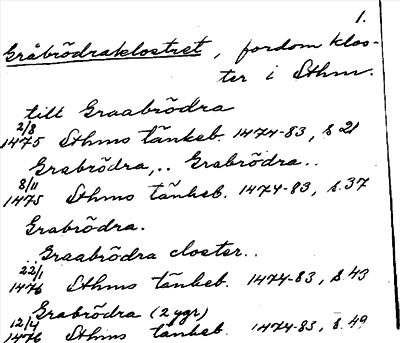 1.
Gråbrödraklostret, fordom klos-
ter i Sthm.
till Graabrödra
2/8 1475 Sthms tänkeb. 1474-83, s. 21
Grabrödra,.. Grabrödra..
8/11 1475 Sthms tänkeb. 1474-83, s. 37
Grabrödra.
..Graabrödra closter..
22/1 1476 Sthms tänkeb. 1474-83, s. 43
Grabrödra (2 ggr)
12/4 1476 Sthms tänkeb. 1474-83, s. 49